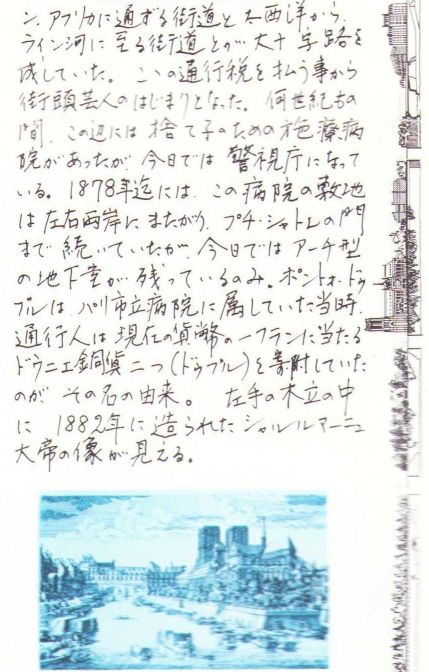 ン、アフリカに通ずる街道と大西洋から、
ライン河に至る街道とが大十字路を
成していた。ここの通行税を払う事から
街頭芸人のはじまりとなった。何世紀もの
間、この辺には捨て子のための施療病
院があったが、今日では警視庁になって
いる。1878年迄には、この病院の敷地
は左右両岸にまたがり、プチ・シャトレの門
まで続いていたが、今日ではアーチ型
の地下室が残っているのみ。ポント・オ・ドゥ
ブルは、パリ市立病院に属していた当時、
通行人は現在の貨幣の一フランに当たる
ドゥニエ銅貨二つ(ドゥブル)を寄附していた
のが、その名の由来。 左手の木立の中
に1882年に造られたシャルルマーニュ
大帝の像が見える。